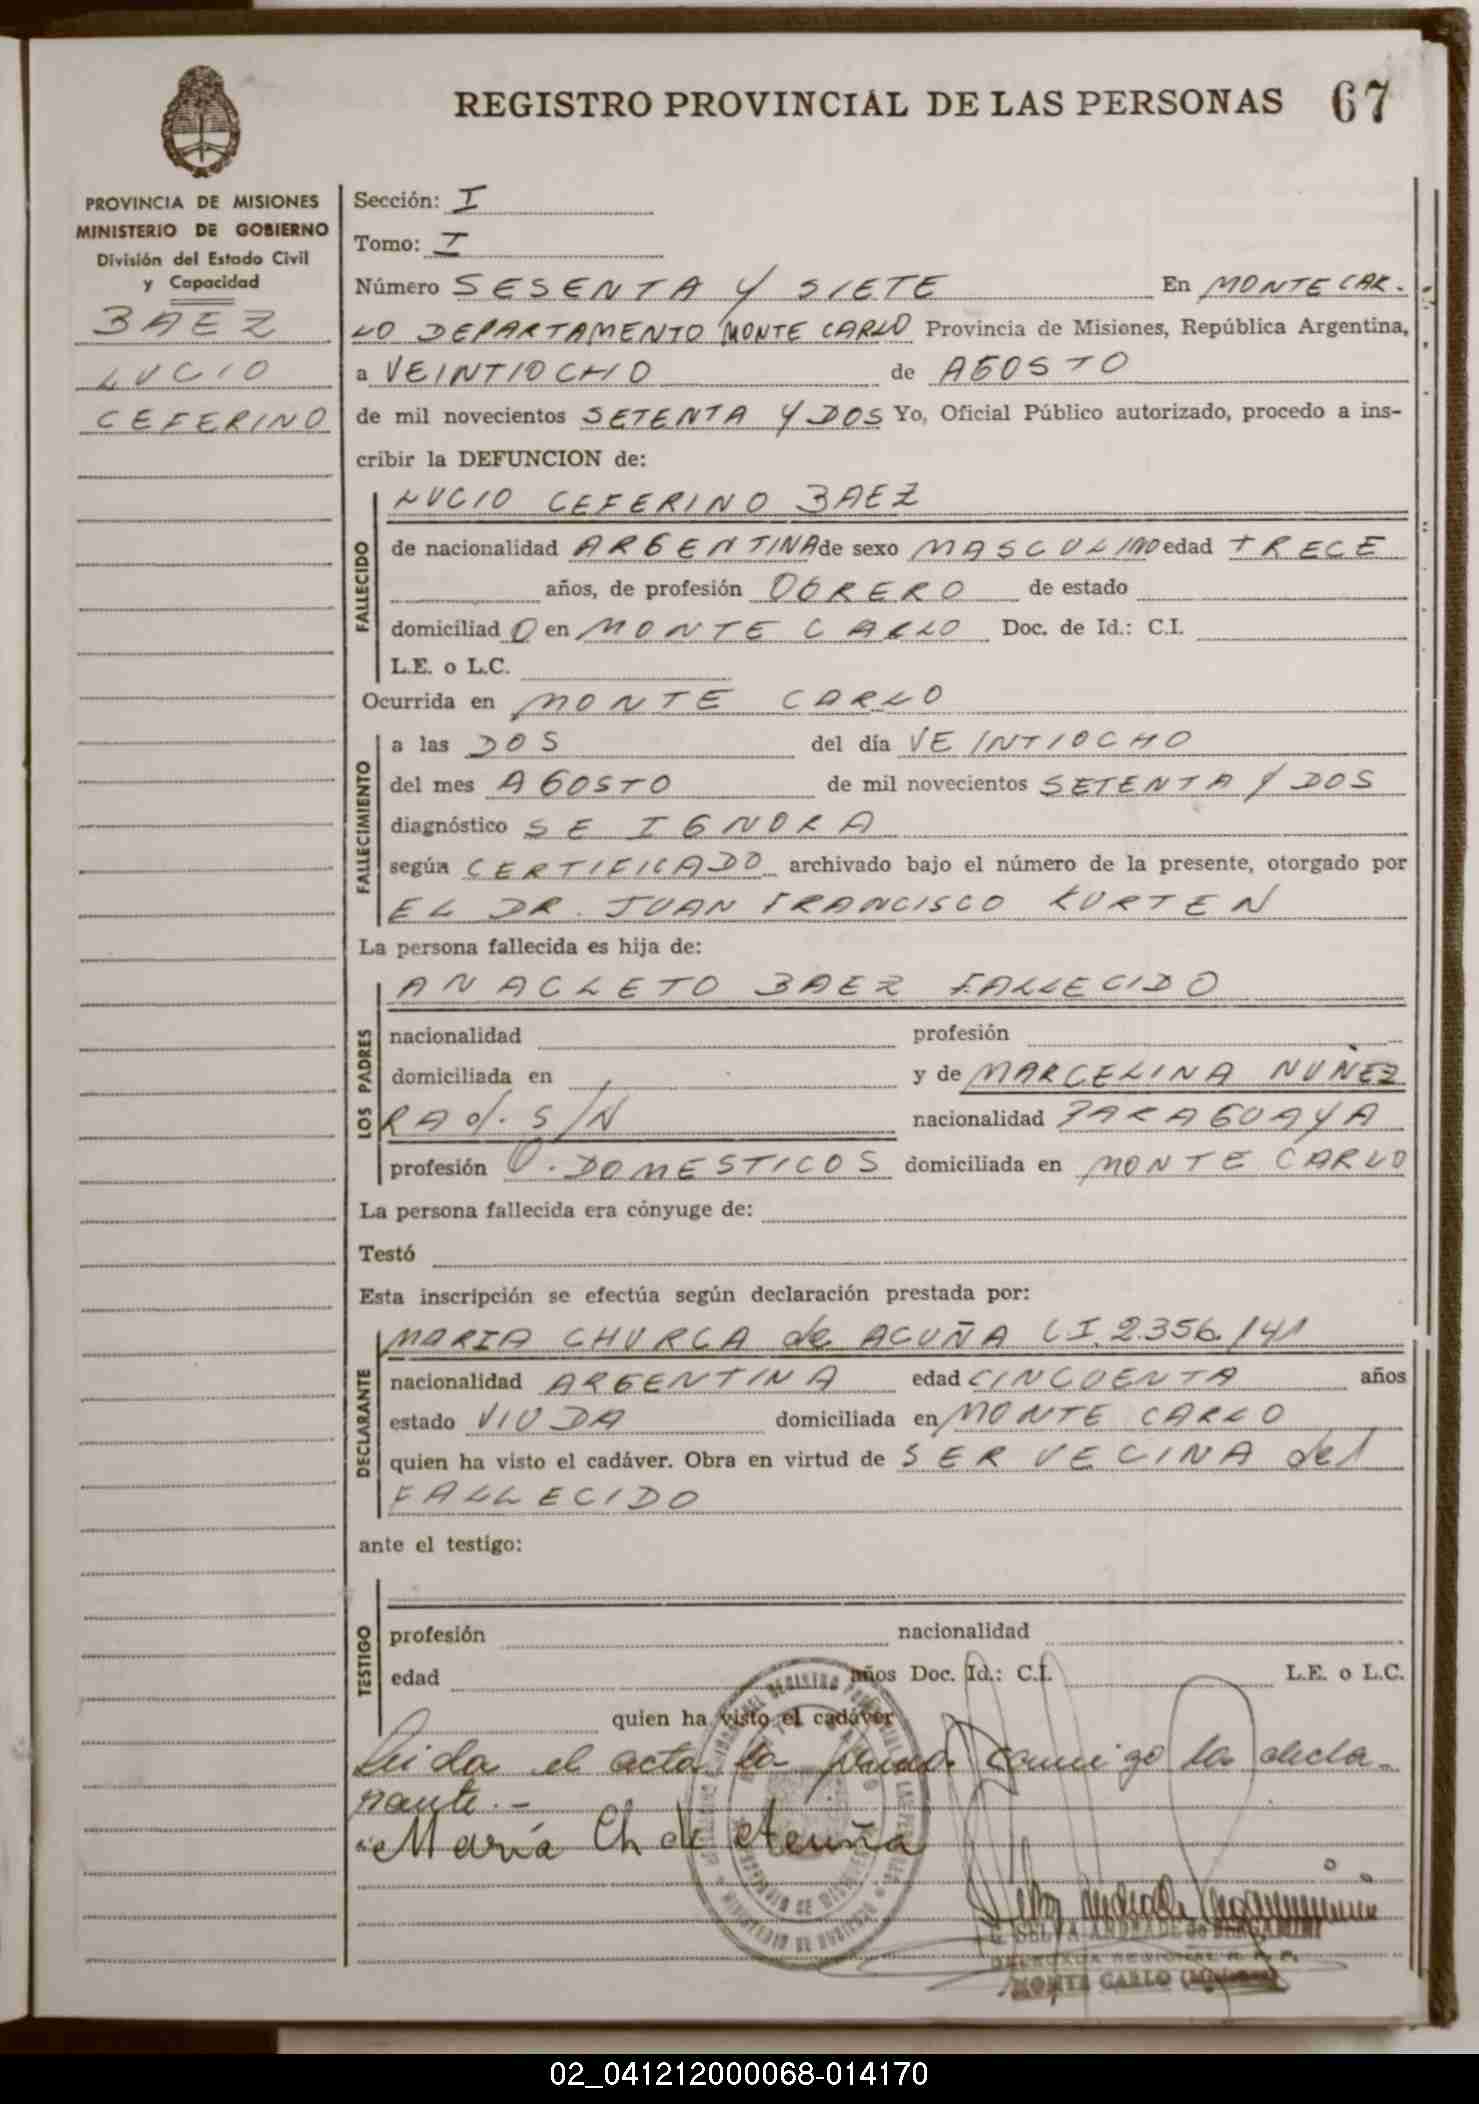 REGISTRO PROVINCIAL DE LAS PERSONAS 67
PROVINCIA DE MISIONES
MINISTERIO DE GOBIERNO
División del Estado Civil
y Capacidad
BAEZ
LUCIO
CEFERINO
Sección: I
Tomo: I
Número SESENTA Y SIETE En MONTE CAR-
LO DEPARTAMENTO MONTE CARLO Provincia de Misiones, República Argentina,
a VEINTIOCHO de AGOSTO
de mil novecientos SETENTA Y DOS Yo, Oficial Público autorizado, procedo a ins-
cribir la DEFUNCION de:
FALLECIDO
LUCIO CEFERINO BAEZ
de nacionalidad ARGENTINA de sexo MASCULINO edad TRECE
años, de profesión OBRERO de estado
domiciliad O en MONTE CARLO Doc. de Id.: C.I.
L.E. o L.C.
Ocurrida en MONTE CARLO
FALLECIMIENTO
a las DOS del día VEINTIOCHO
del mes AGOSTO de mil novecientos SETENTA Y DOS
diagnóstico SE IGNORA
según CERTIFICADO archivado bajo el número de la presente, otorgado por
EL DR. JUAN FRANCISCO KURTEN
La persona fallecida es hija de:
LOS PADRES
ANACLETO BAEZ FALLECIDO
nacionalidad profesión
domiciliada en y de MARCELINA NUÑEZ
RAd. S/N nacionalidad PARAGUAYA
profesión Q. DOMESTICOS domiciliada en MONTE CARLO
La persona fallecida era cónyuge de:
Testó
Esta inscripción se efectúa según declaración prestada por:
DECLARANTE
MARIA CHURCA de ACUÑA CI.2356.141
nacionalidad ARGENTINA edad CINCUENTA años
estado VIUDA domiciliada en MONTE CARLO
quien ha visto el cadáver. Obra en virtud de SER VECINA del
FALLECIDO
ante el testigo:
TESTIGO
profesión nacionalidad
edad años Doc. Id.: C.I. L.E. o L.C.
quien ha visto el cadáver
Leida el acta la firma conmigo la decla-
rante.-
María Ch de Acuña
SELVA ANDRADE de BERGAMINI
MONTE CARLO (Misiones)
02_041212000068-014170